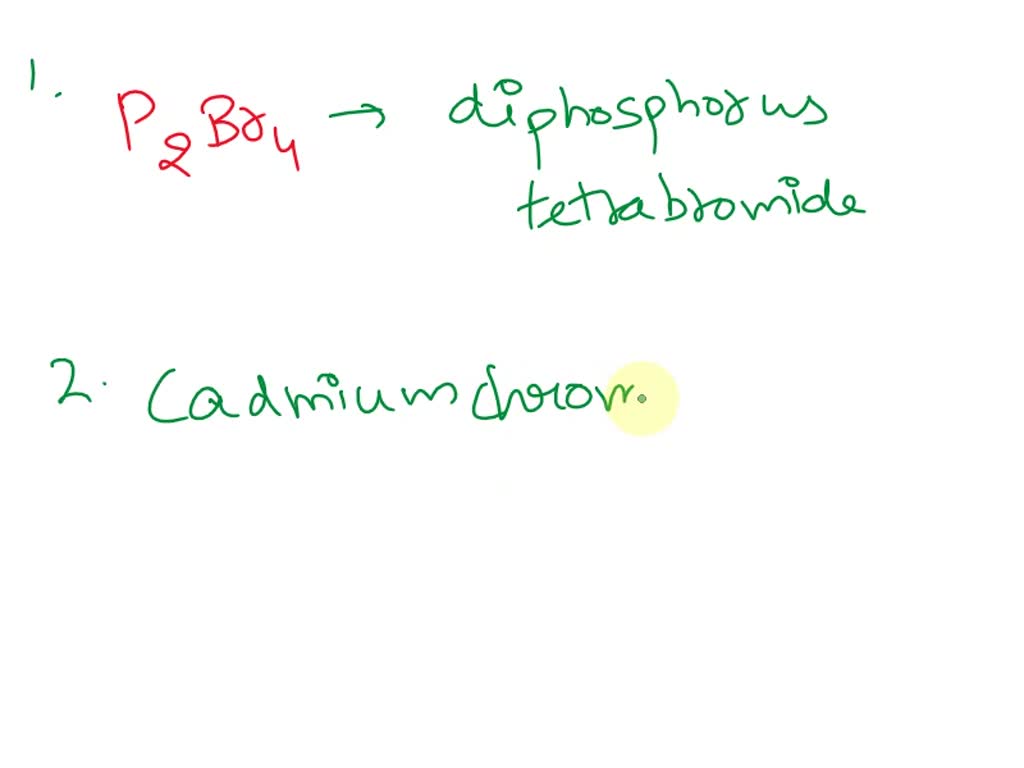 1. P2Br4 → diphosphorus
tetrabromide
2. Cadmium chrom